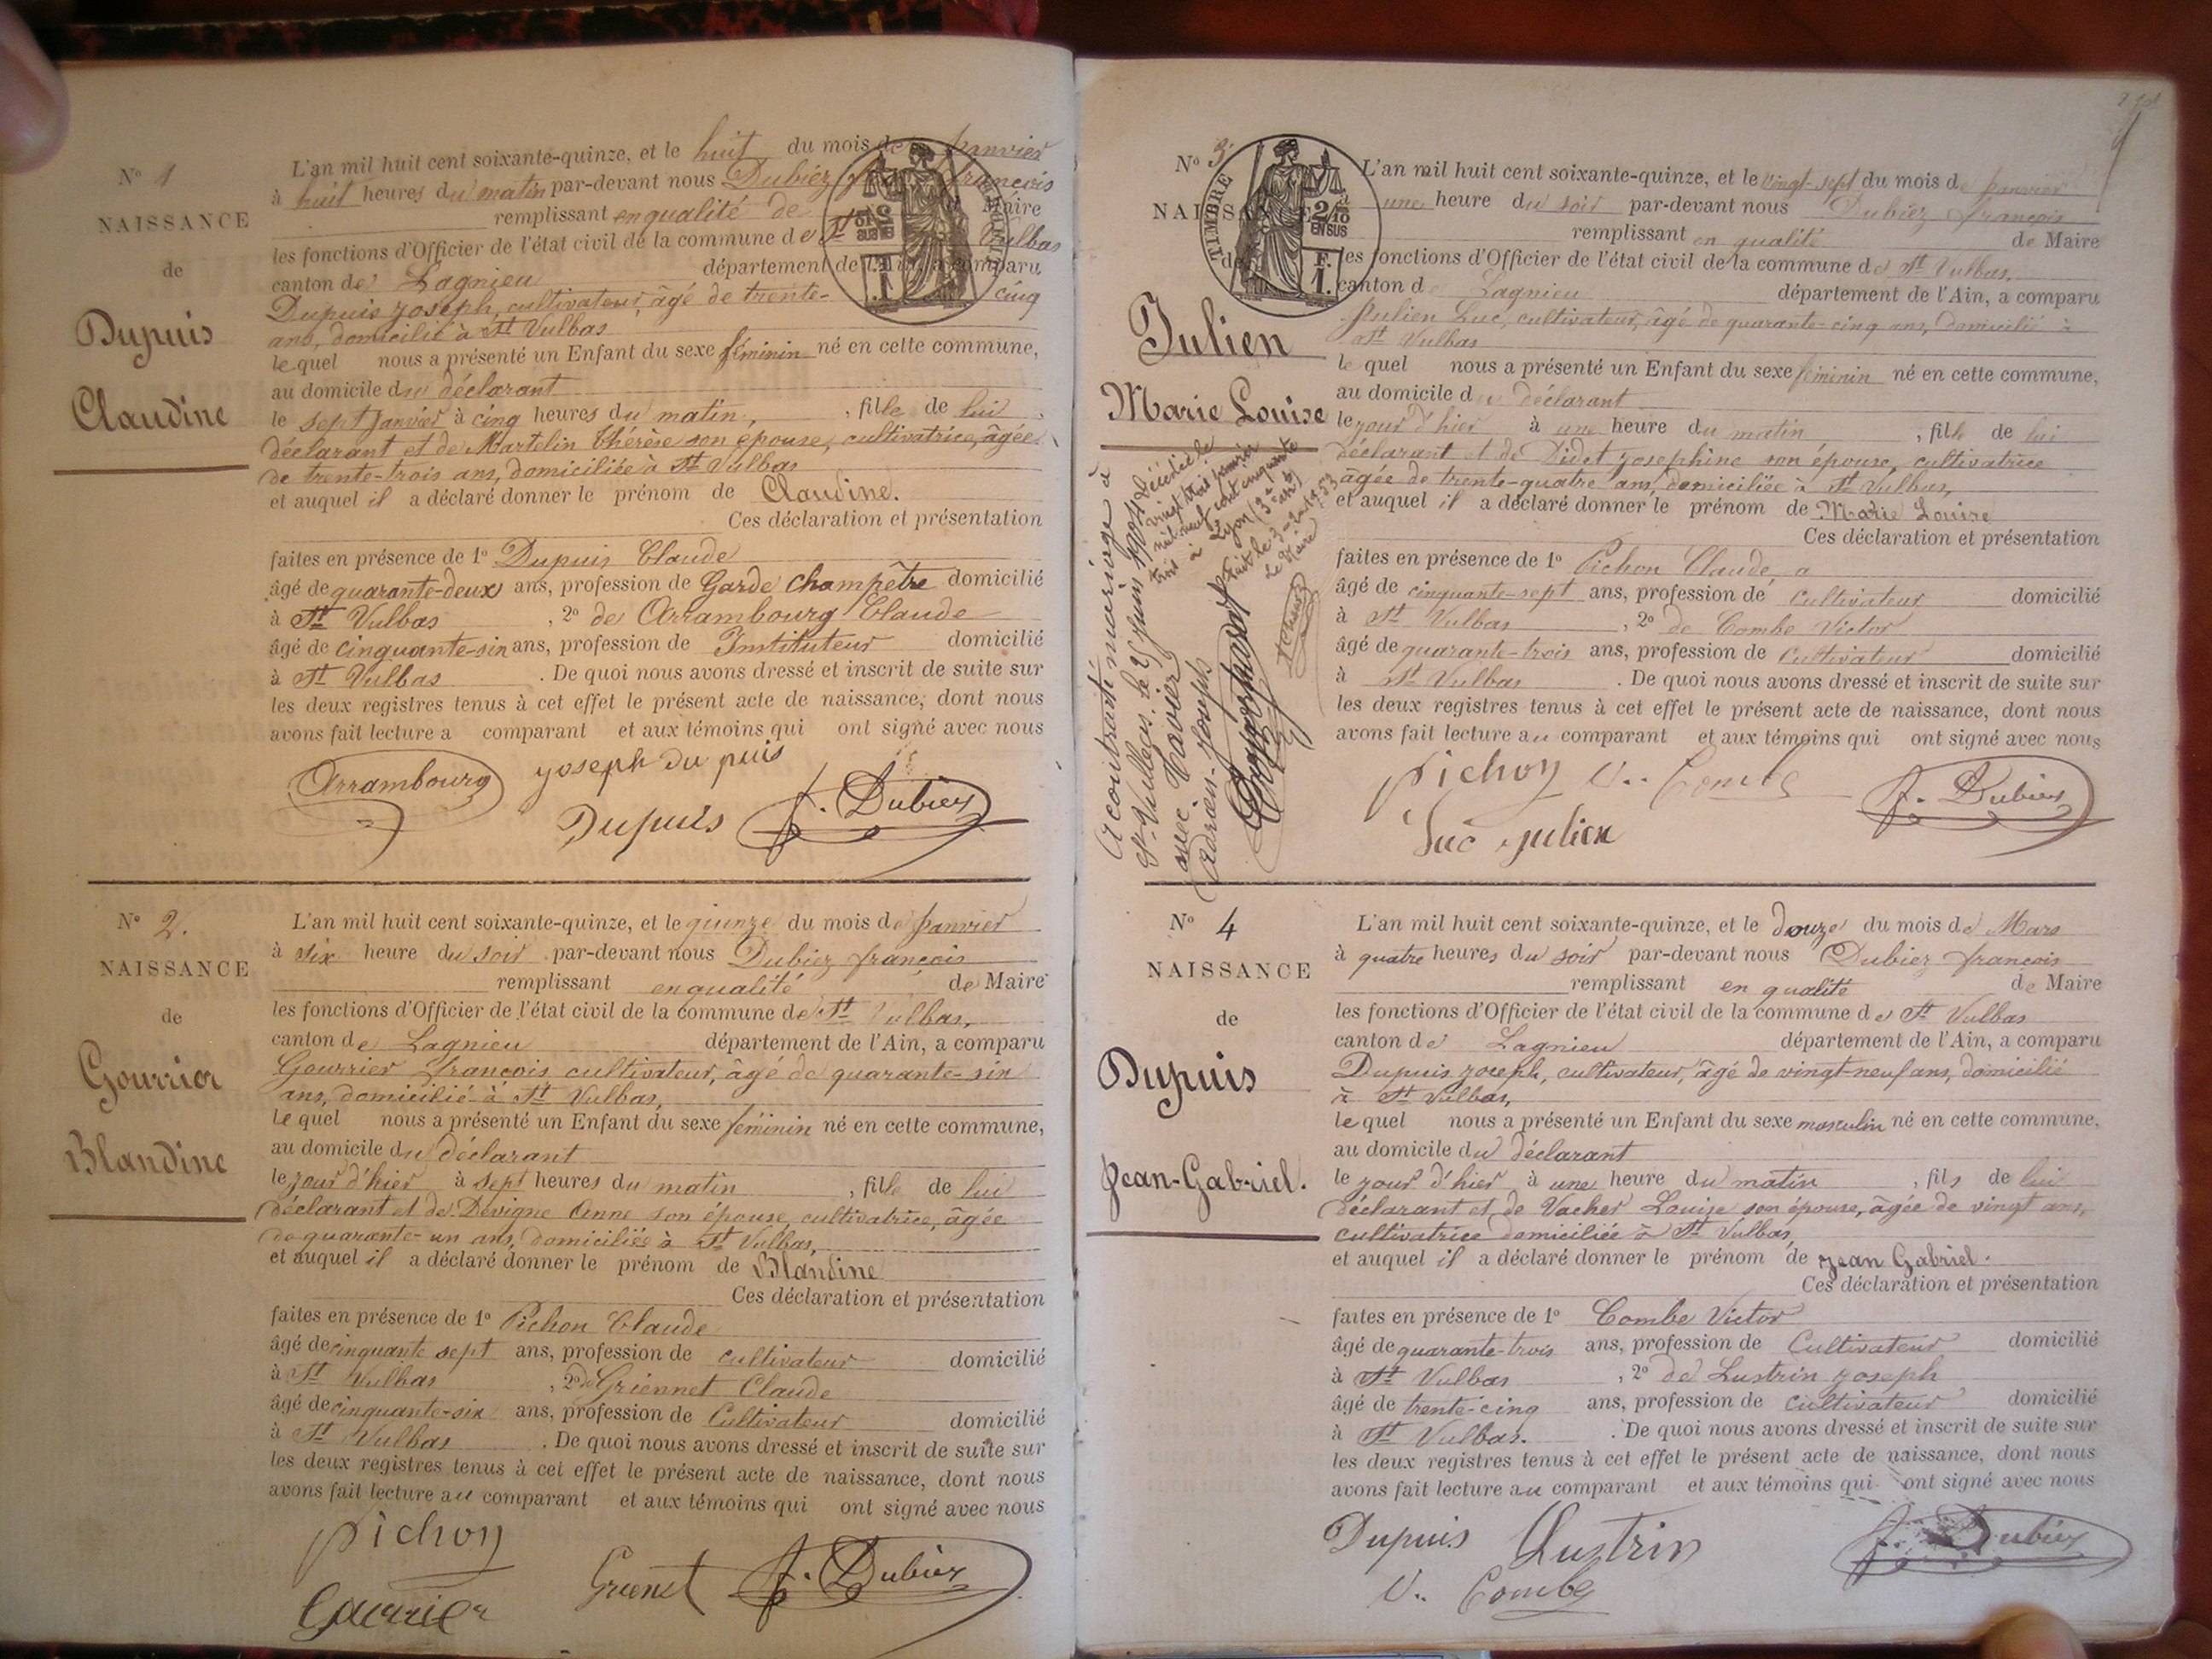 N° 1
NAISSANCE
de
Dupuis
Claudine
L'an mil huit cent soixante-quinze, et le huit du mois de Janvier
à huit heures du matin par-devant nous Dubiez françois
remplissant en qualité de Maire
les fonctions d'Officier de l'état civil de la commune de St Vulbas
canton de Lagnieu département de l'Ain, a comparu
Dupuis Joseph, cultivateur, âgé de trente-cinq
ans, domicilié à St Vulbas
lequel nous a présenté un Enfant du sexe féminin né en cette commune,
au domicile du déclarant
le sept Janvier à cinq heures du matin, , fille de lui
déclarant et de Martelin Thérèse son épouse, cultivatrice, âgée
de trente-trois ans, domiciliée à St Vulbas
et auquel il a déclaré donner le prénom de Claudine.
Ces déclaration et présentation
faites en présence de 1° Dupuis Claude
âgé de quarante-deux ans, profession de Garde champêtre domicilié
à St Vulbas , 2° de Arrambourg Claude
âgé de cinquante-six ans, profession de Instituteur domicilié
à St Vulbas . De quoi nous avons dressé et inscrit de suite sur
les deux registres tenus à cet effet le présent acte de naissance, dont nous
avons fait lecture a comparant et aux témoins qui ont signé avec nous
Arrambourg Joseph Du puis
Dupuis f. Dubiez
N° 2.
NAISSANCE
de
Gourrier
Blandine
L'an mil huit cent soixante-quinze, et le quinze du mois de Janvier
à six heure du soir par-devant nous Dubiez françois
remplissant en qualité de Maire
les fonctions d'Officier de l'état civil de la commune de St Vulbas,
canton de Lagnieu département de l'Ain, a comparu
Gourrier françois cultivateur, âgé de quarante-six
ans, domicilié à St Vulbas,
lequel nous a présenté un Enfant du sexe féminin né en cette commune,
au domicile du déclarant
le jour d'hier à sept heures du matin , fille de lui
déclarant et de Devigne Anne son épouse, cultivatrice, âgée
de quarante-un ans, domiciliée à St Vulbas,
et auquel il a déclaré donner le prénom de Blandine
Ces déclaration et présentation
faites en présence de 1° Pichon Claude
âgé de cinquante sept ans, profession de cultivateur domicilié
à St Vulbas , 2° de Griennet Claude
âgé de cinquante-six ans, profession de Cultivateur domicilié
à St Vulbas . De quoi nous avons dressé et inscrit de suite sur
les deux registres tenus à cet effet le présent acte de naissance, dont nous
avons fait lecture au comparant et aux témoins qui ont signé avec nous
Pichon
Gourrier f. Dubiez
N° 3
NAISSANCE
de
TIMBRE
2/10
EN SUS
F.
1.
Julien
Marie Louise
A contracté mariage à
St-Vulbas, le 25 Juin 1904
avec Tavier
Adrien-Joseph
Décédée le
vingt trois janvier
mil neuf cent cinquante
trois à Lyon (3e arrt)
Le Maire
L'an mil huit cent soixante-quinze, et le vingt-sept du mois de Janvier
à une heure du soir par-devant nous Dubiez françois
remplissant en qualité de Maire
les fonctions d'Officier de l'état civil de la commune de St Vulbas,
canton de Lagnieu département de l'Ain, a comparu
Julien Luc, cultivateur, âgé de quarante-cinq ans, domicilié à
St Vulbas
lequel nous a présenté un Enfant du sexe féminin né en cette commune,
au domicile du déclarant
le jour d'hier à une heure du matin , fille de lui
déclarant et de Didet Josephine son épouse, cultivatrice
âgée de trente-quatre ans, domiciliée à St Vulbas,
et auquel il a déclaré donner le prénom de Marie Louise
Ces déclaration et présentation
faites en présence de 1° Pichon Claude, a
âgé de cinquante-sept ans, profession de Cultivateur domicilié
à St Vulbas , 2° de Combe Victor
âgé de quarante-trois ans, profession de Cultivateur domicilié
à St Vulbas . De quoi nous avons dressé et inscrit de suite sur
les deux registres tenus à cet effet le présent acte de naissance, dont nous
avons fait lecture au comparant et aux témoins qui ont signé avec nous
Pichon V. Combe
Luc Julien f. Dubiez
N° 4
NAISSANCE
de
Dupuis
Jean-Gabriel.
L'an mil huit cent soixante-quinze, et le douze du mois de Mars
à quatre heures du soir par-devant nous Dubiez françois
remplissant en qualité de Maire
les fonctions d'Officier de l'état civil de la commune de St Vulbas
canton de Lagnieu département de l'Ain, a comparu
Dupuis Joseph, cultivateur, âgé de vingt-neuf ans, domicilié
à St Vulbas,
lequel nous a présenté un Enfant du sexe masculin né en cette commune,
au domicile du déclarant
le jour d'hier à une heure du matin , fils de lui
déclarant et de Vacher Louise son épouse, âgée de vingt ans,
cultivatrice domiciliée à St Vulbas,
et auquel il a déclaré donner le prénom de Jean Gabriel.
Ces déclaration et présentation
faites en présence de 1° Combe Victor
âgé de quarante-trois ans, profession de Cultivateur domicilié
à St Vulbas , 2° de Lustrin Joseph
âgé de trente-cinq ans, profession de Cultivateur domicilié
à St Vulbas. . De quoi nous avons dressé et inscrit de suite sur
les deux registres tenus à cet effet le présent acte de naissance, dont nous
avons fait lecture au comparant et aux témoins qui ont signé avec nous
Dupuis Lustrin f. Dubiez
V. Combe